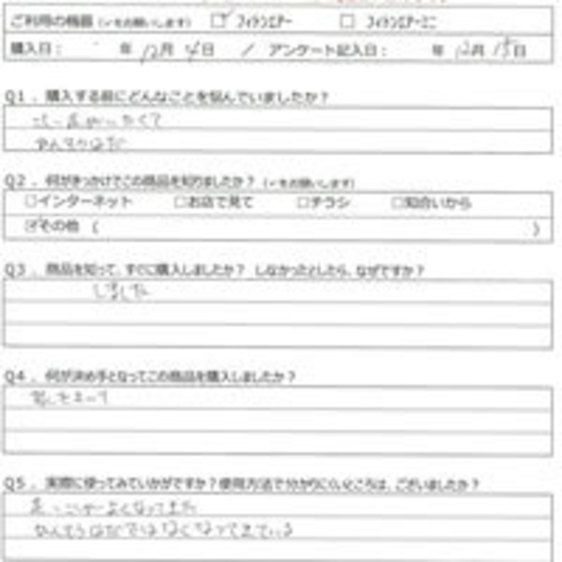 ご利用の機器 (✓をお願いします) ☑ フィトンエアー ☐ フィトンエアーミニ
購入日： 年 12月 4日 ／ アンケート記入日： 年 12月 15日
Q1．購入する前にどんなことを悩んでいましたか？
かんそうはだ
Q2．何がきっかけでこの商品を知りましたか？ (✓をお願いします)
☐インターネット ☐お店で見て ☐チラシ ☐知合いから
☑その他 ( )
Q3．商品を知って、すぐに購入しましたか？ しなかったとしたら、なぜですか？
しました
Q4．何が決め手となってこの商品を購入しましたか？
Q5．実際に使ってみていかがですか？使用方法で分かりにくいところは、ございましたか？
よくなってきた
かんそうはだではなくなってきている